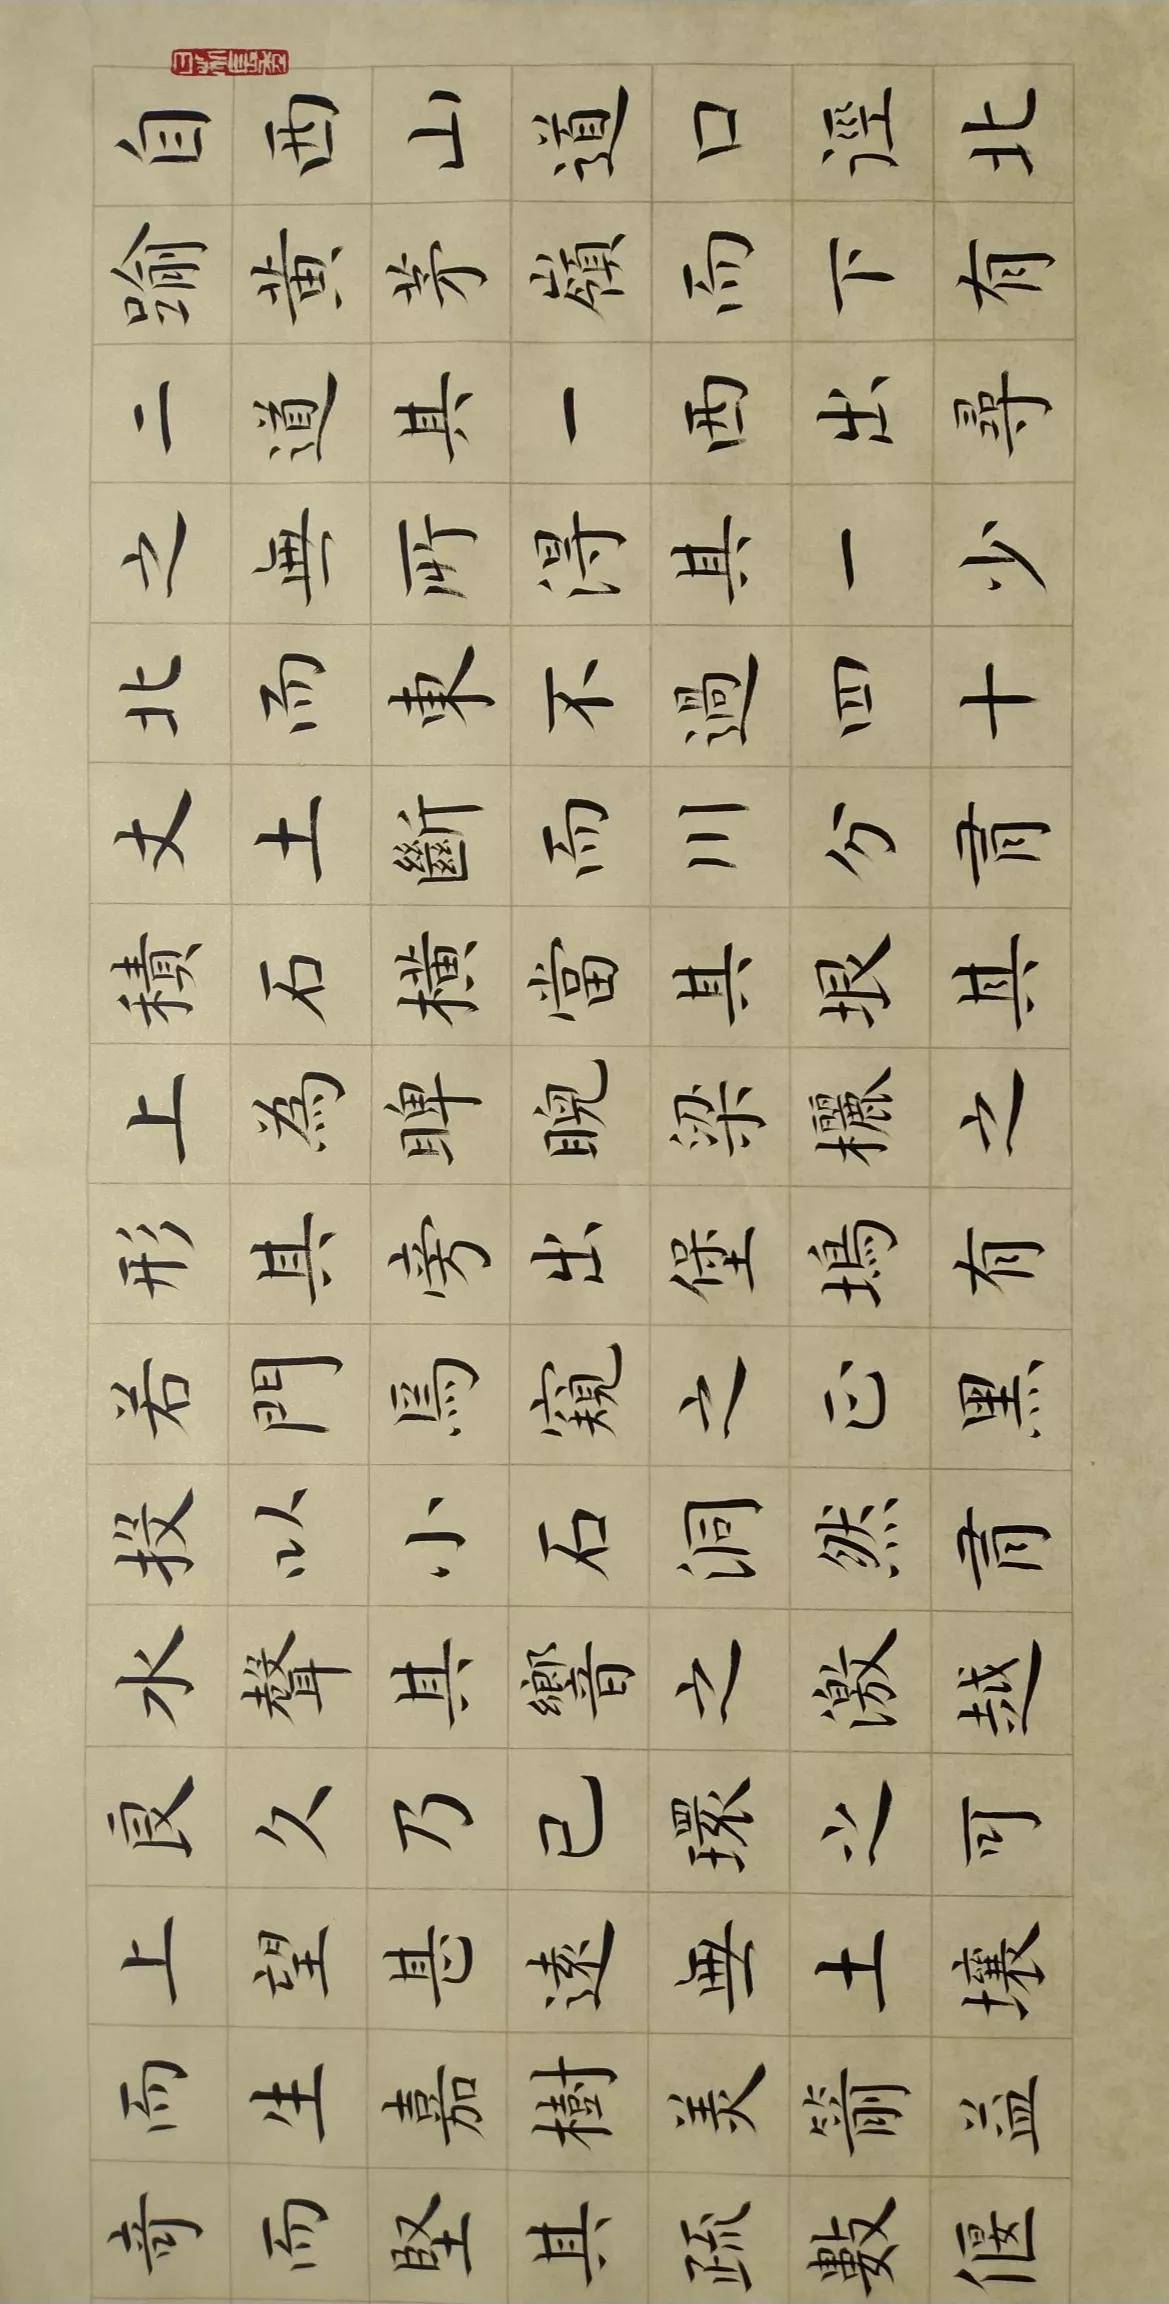 自西山道口逕北
踰黃茅嶺而下有
二道其一西出尋
之無所得其一少
北而東不過四十
丈土斷而川分有
積石橫當其垠其
上為睥睨梁欐之
形其旁出堡塢有
若門焉窺之正黑
投以小石洞然有
水聲其響之激越
良久乃已環之可
上望甚遠無土壤
而生嘉樹美箭益
奇而堅其疏數偃